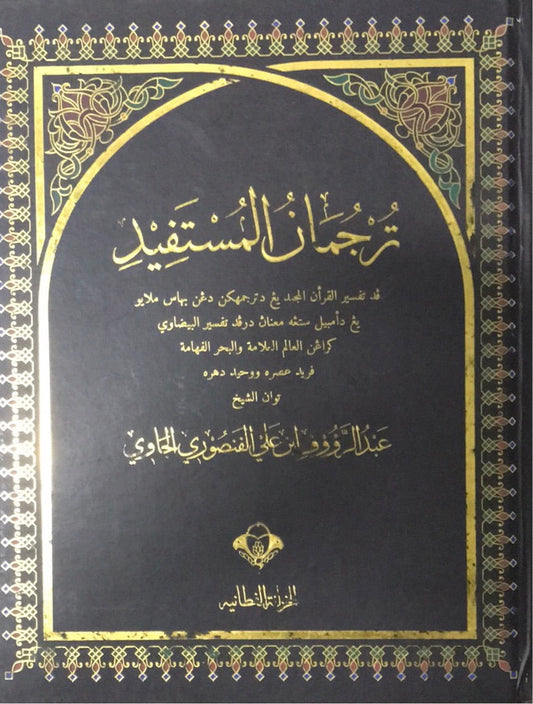 تُرْجُمَانُ الْمُسْتَفِيْدِ
ڤد تفسير القرأن المجيد يڠ دترجمهكن دڠن بهاس ملايو
يڠ دأمبيل ستڠه معنان درڤد تفسير البيضاوي
كراڠن العالم العلامة والبحر الفهامة
فريد عصره ووحيد دهره
توان الشيخ
عَبْدُ الرَّؤُوْفِ ابْنِ عَلِيِّ الْفَنْصُوْرِيِّ الْجَاوِيِّ
الخزانة الفطانيه